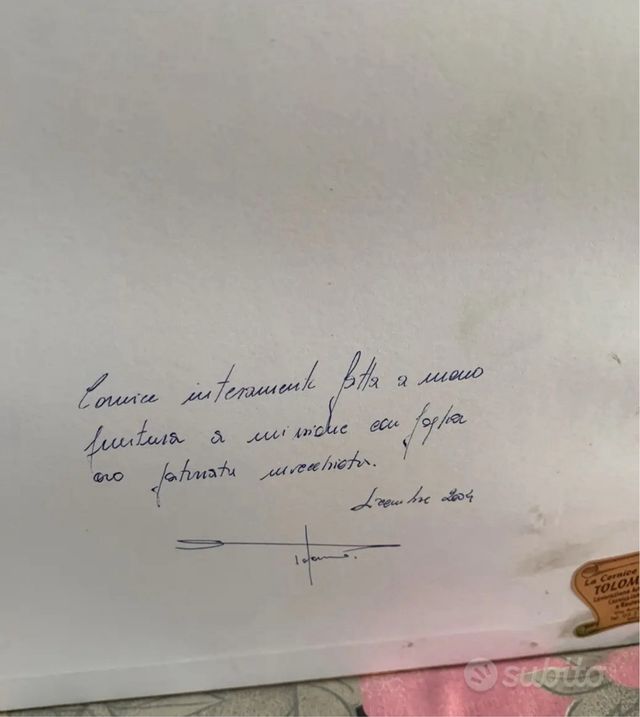 Cornice interamente fatta a mano
finitura a missione con foglia
oro patinata invecchiata.
Dicembre 2004
La Cornice
TOLOM
subito